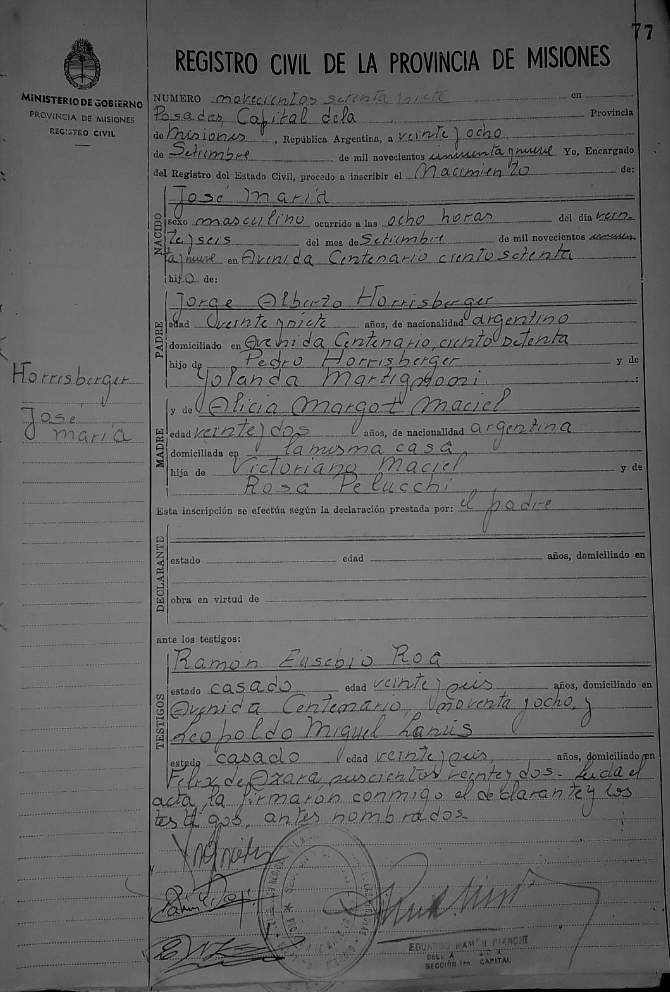 77
REGISTRO CIVIL DE LA PROVINCIA DE MISIONES
MINISTERIO DE GOBIERNO
PROVINCIA DE MISIONES
REGISTRO CIVIL
NUMERO novecientos setenta y siete en
Posadas, Capital de la Provincia
de Misiones, República Argentina, a veinte y ocho
de Setiembre de mil novecientos cincuenta y nueve Yo, Encargado
del Registro del Estado Civil, procedo a inscribir el Nacimiento de:
NACIDO
José María
sexo masculino ocurrido a las ocho horas del día vein-
te y seis del mes de Setiembre de mil novecientos cincuen
ta y nueve en Avenida Centenario ciento setenta
hijo de:
PADRE
Jorge Alberto Horrisberger
edad veinte y siete años, de nacionalidad argentino
domiciliado en Avenida Centenario, ciento setenta
hijo de Pedro Horrisberger y de
Yolanda Martignoni :
Horrisberger
José
María
MADRE
y de Alicia Margot Maciel
edad veinte y dos años, de nacionalidad argentina
domiciliada en la misma casa
hija de Victoriano Maciel y de
Rosa Pelucchi
Esta inscripción se efectúa según la declaración prestada por: el padre
DECLARANTE
estado edad años, domiciliado en
obra en virtud de
ante los testigos:
TESTIGOS
Ramón Eusebio Roa
estado casado edad veinte y seis años, domiciliado en
Avenida Centenario, noventa y ocho, y
Leopoldo Miguel Lanús
estado casado edad veinte y seis años, domiciliado en
Felix de Azara, seiscientos veinte y dos.- Leida el
acta, la firmaron conmigo el declarante y los
testigos, antes nombrados.
EDUARDO RAMÓN BIANCHI
SECCIÓN 1ra. CAPITAL